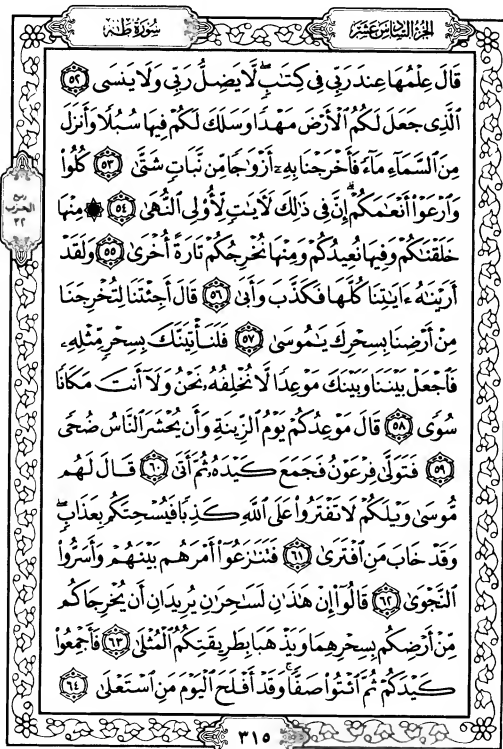 الجزء السادس عشر
سورة طه
قَالَ عِلْمُهَا عِندَ رَبِّي فِي كِتَٰبٖۖ لَّا يَضِلُّ رَبِّي وَلَا يَنسَى ٥٢
ٱلَّذِي جَعَلَ لَكُمُ ٱلۡأَرۡضَ مَهۡدٗا وَسَلَكَ لَكُمۡ فِيهَا سُبُلٗا وَأَنزَلَ
مِنَ ٱلسَّمَآءِ مَآءٗ فَأَخۡرَجۡنَا بِهِۦٓ أَزۡوَٰجٗا مِّن نَّبَاتٖ شَتَّىٰ ٥٣ كُلُواْ
وَٱرۡعَوۡاْ أَنۡعَٰمَكُمۡۚ إِنَّ فِي ذَٰلِكَ لَأٓيَٰتٖ لِّأُوْلِي ٱلنُّهَىٰ ٥٤ ۞ مِنۡهَا
ربع
الحزب
٣٢
خَلَقۡنَٰكُمۡ وَفِيهَا نُعِيدُكُمۡ وَمِنۡهَا نُخۡرِجُكُمۡ تَارَةً أُخۡرَىٰ ٥٥ وَلَقَدۡ
أَرَيۡنَٰهُ ءَايَٰتِنَا كُلَّهَا فَكَذَّبَ وَأَبَىٰ ٥٦ قَالَ أَجِئۡتَنَا لِتُخۡرِجَنَا
مِنۡ أَرۡضِنَا بِسِحۡرِكَ يَٰمُوسَىٰ ٥٧ فَلَنَأۡتِيَنَّكَ بِسِحۡرٖ مِّثۡلِهِۦ
فَٱجۡعَلۡ بَيۡنَنَا وَبَيۡنَكَ مَوۡعِدٗا لَّا نُخۡلِفُهُۥ نَحۡنُ وَلَآ أَنتَ مَكَانٗا
سُوٗى ٥٨ قَالَ مَوۡعِدُكُمۡ يَوۡمُ ٱلزِّينَةِ وَأَن يُحۡشَرَ ٱلنَّاسُ ضُحٗى
٥٩ فَتَوَلَّىٰ فِرۡعَوۡنُ فَجَمَعَ كَيۡدَهُۥ ثُمَّ أَتَىٰ ٦٠ قَالَ لَهُم
مُّوسَىٰ وَيۡلَكُمۡ لَا تَفۡتَرُواْ عَلَى ٱللَّهِ كَذِبٗا فَيُسۡحِتَكُم بِعَذَابٖۖ
وَقَدۡ خَابَ مَنِ ٱفۡتَرَىٰ ٦١ فَتَنَٰزَعُوٓاْ أَمۡرَهُم بَيۡنَهُمۡ وَأَسَرُّواْ
ٱلنَّجۡوَىٰ ٦٢ قَالُوٓاْ إِنۡ هَٰذَٰنِ لَسَٰحِرَٰنِ يُرِيدَانِ أَن يُخۡرِجَاكُم
مِّنۡ أَرۡضِكُم بِسِحۡرِهِمَا وَيَذۡهَبَا بِطَرِيقَتِكُمُ ٱلۡمُثۡلَىٰ ٦٣ فَأَجۡمِعُواْ
كَيۡدَكُمۡ ثُمَّ ٱئۡتُواْ صَفّٗاۚ وَقَدۡ أَفۡلَحَ ٱلۡيَوۡمَ مَنِ ٱسۡتَعۡلَىٰ ٦٤
٣١٥